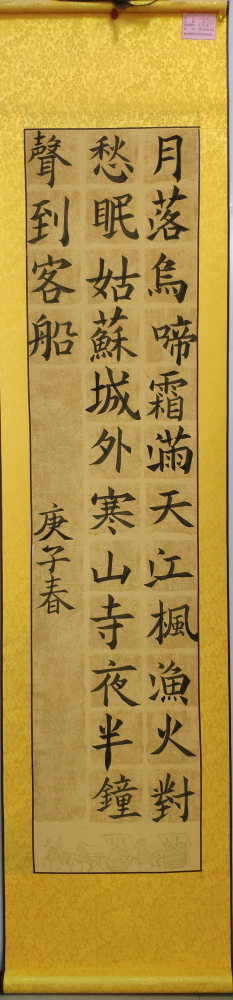 月落烏啼霜滿天江楓漁火對
愁眠姑蘇城外寒山寺夜半鐘
聲到客船
庚子春